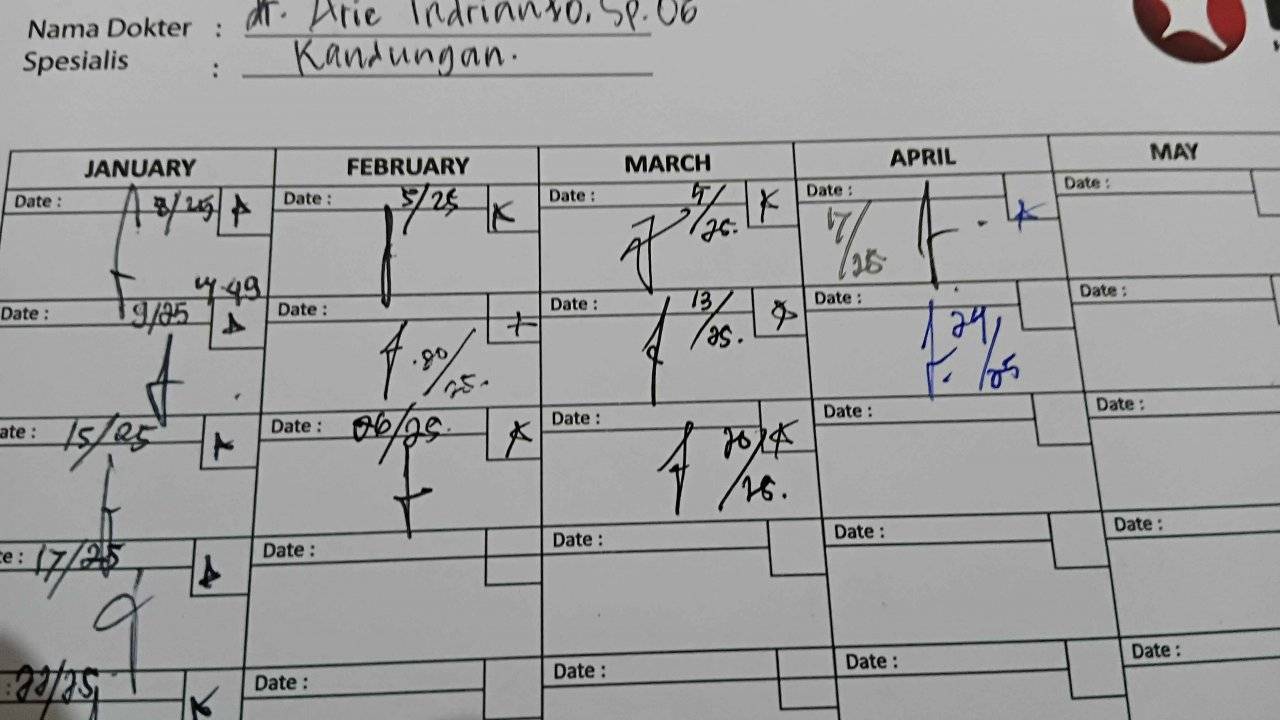 Nama Dokter : dr. Arie Indrianto, Sp.OG
Spesialis : Kandungan.
JANUARY FEBRUARY MARCH APRIL MAY
Date : 8/25 A Date : 5/25 K Date : 5/25. K Date : 17/25 K Date :
Date : 9/25 A Date : 20/25. Date : 13/25. Date : 24/25 Date :
ate : 15/25 A Date : 26/25. K Date : 20/25. K Date : Date :
te : 17/25 A Date : Date : Date : Date :
: 22/25 K Date : Date : Date : Date :